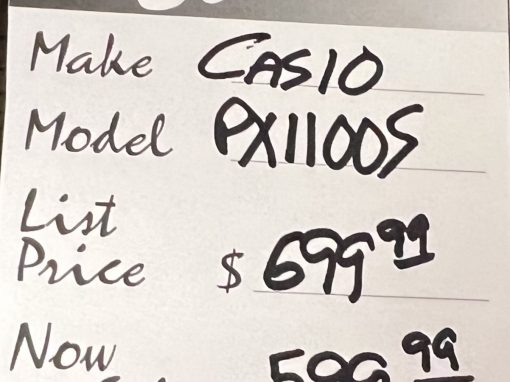 Make CASIO
Model PX1100S
List
Price $ 699.99
Now 599.99